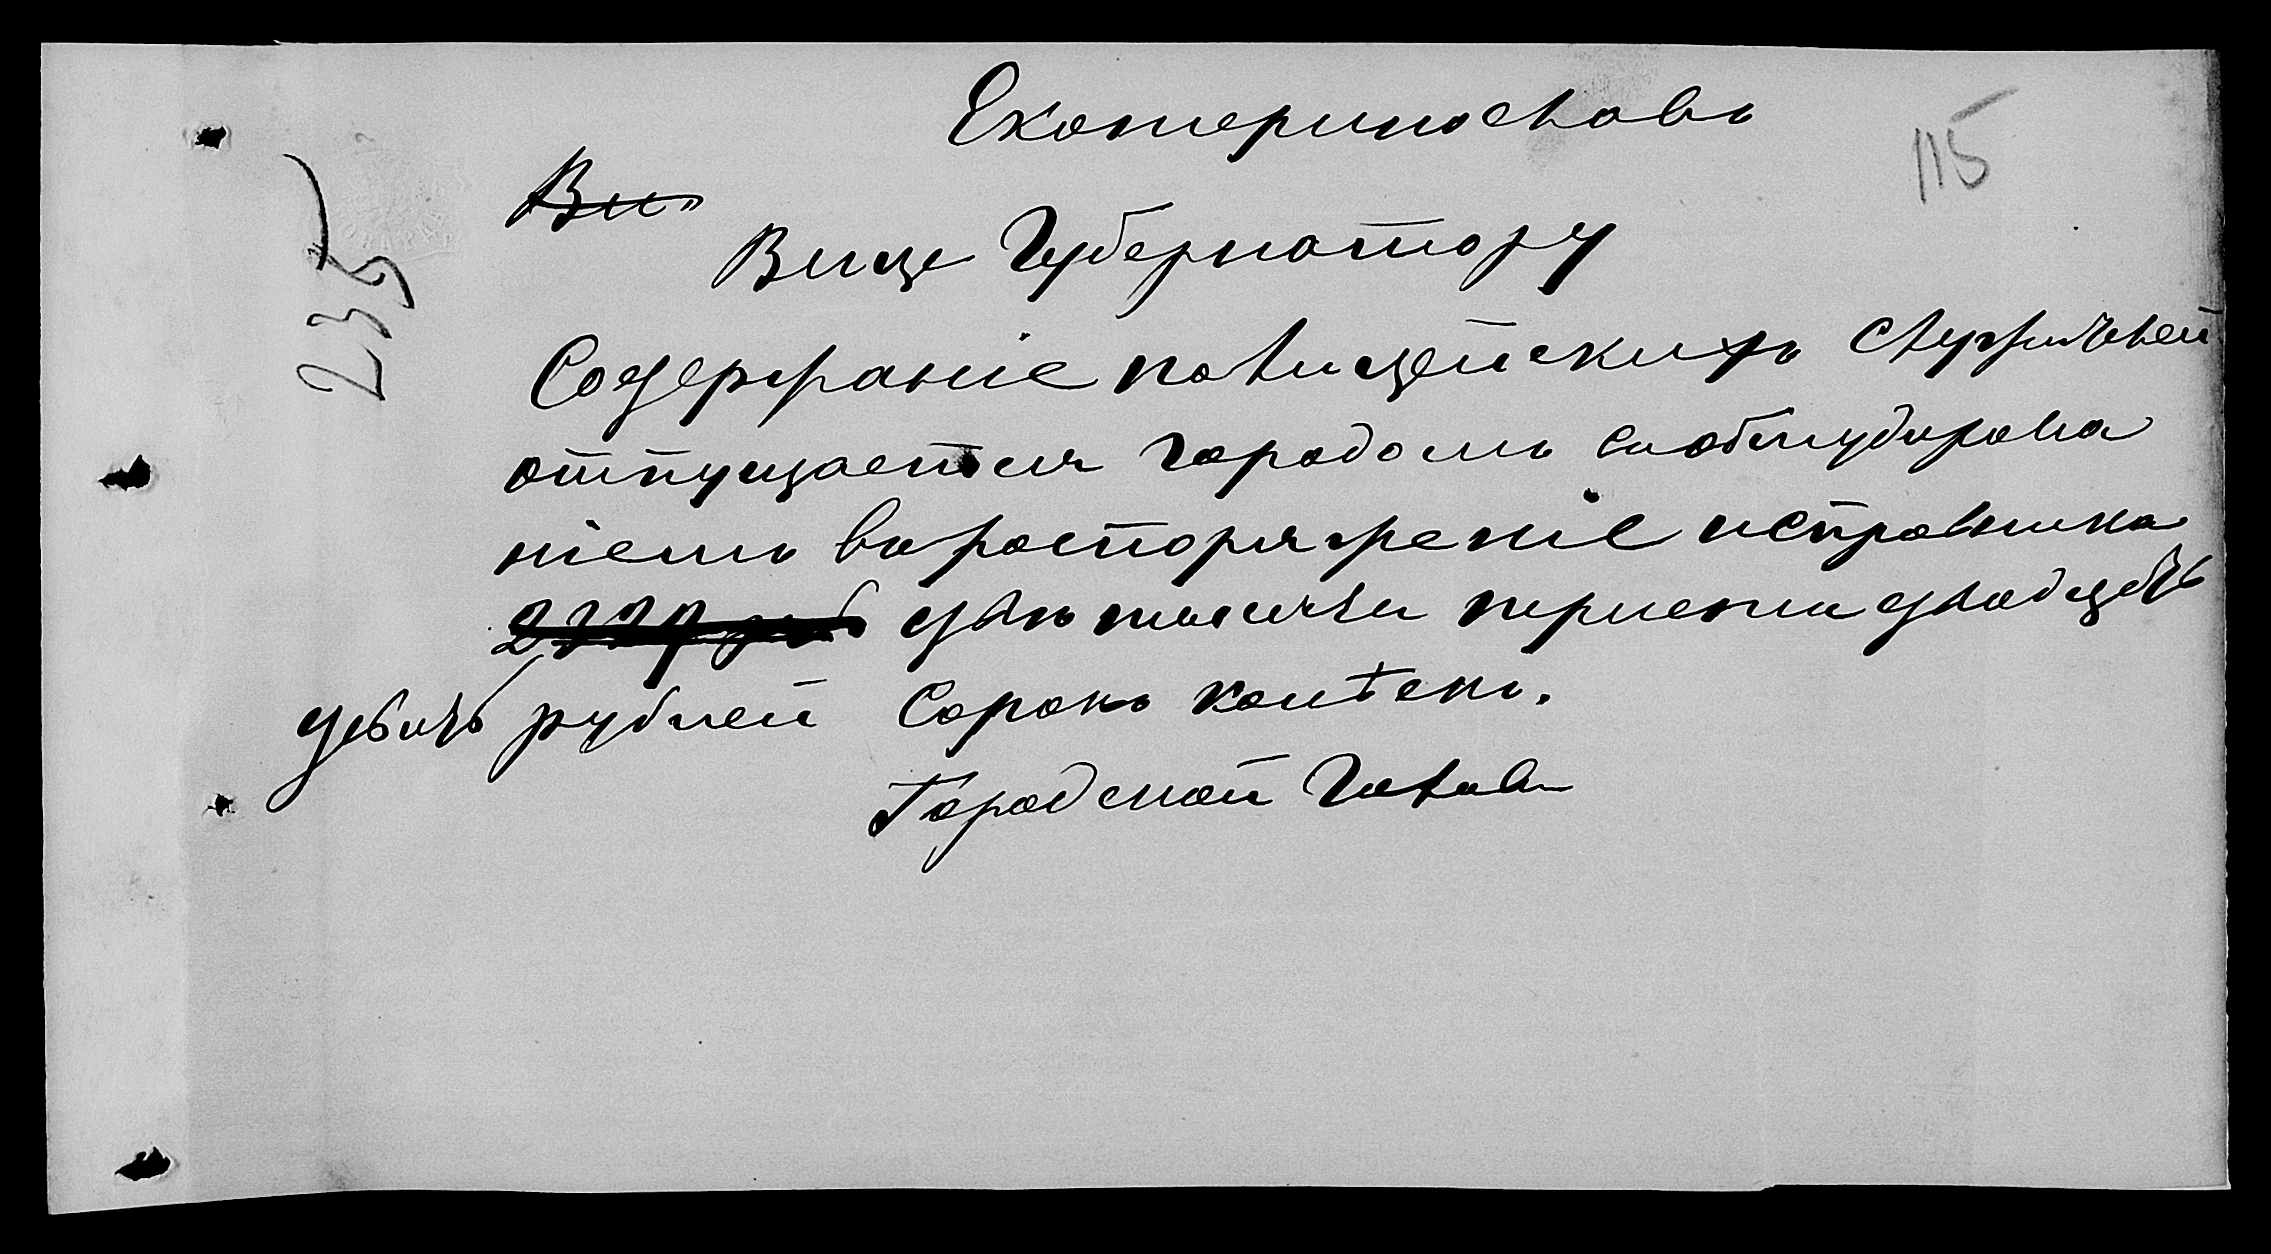 Екатеринославъ
115
Ви
Вице Губернатору
235
Содержаніе полицейскихъ служителей
отпущается городомъ съ обмундирова
ніемъ въ роспоряженіе исправника
2329 руб двѣ тысячи триста двадцать
девять рублей сорокъ копѣекъ.
Городской Голова